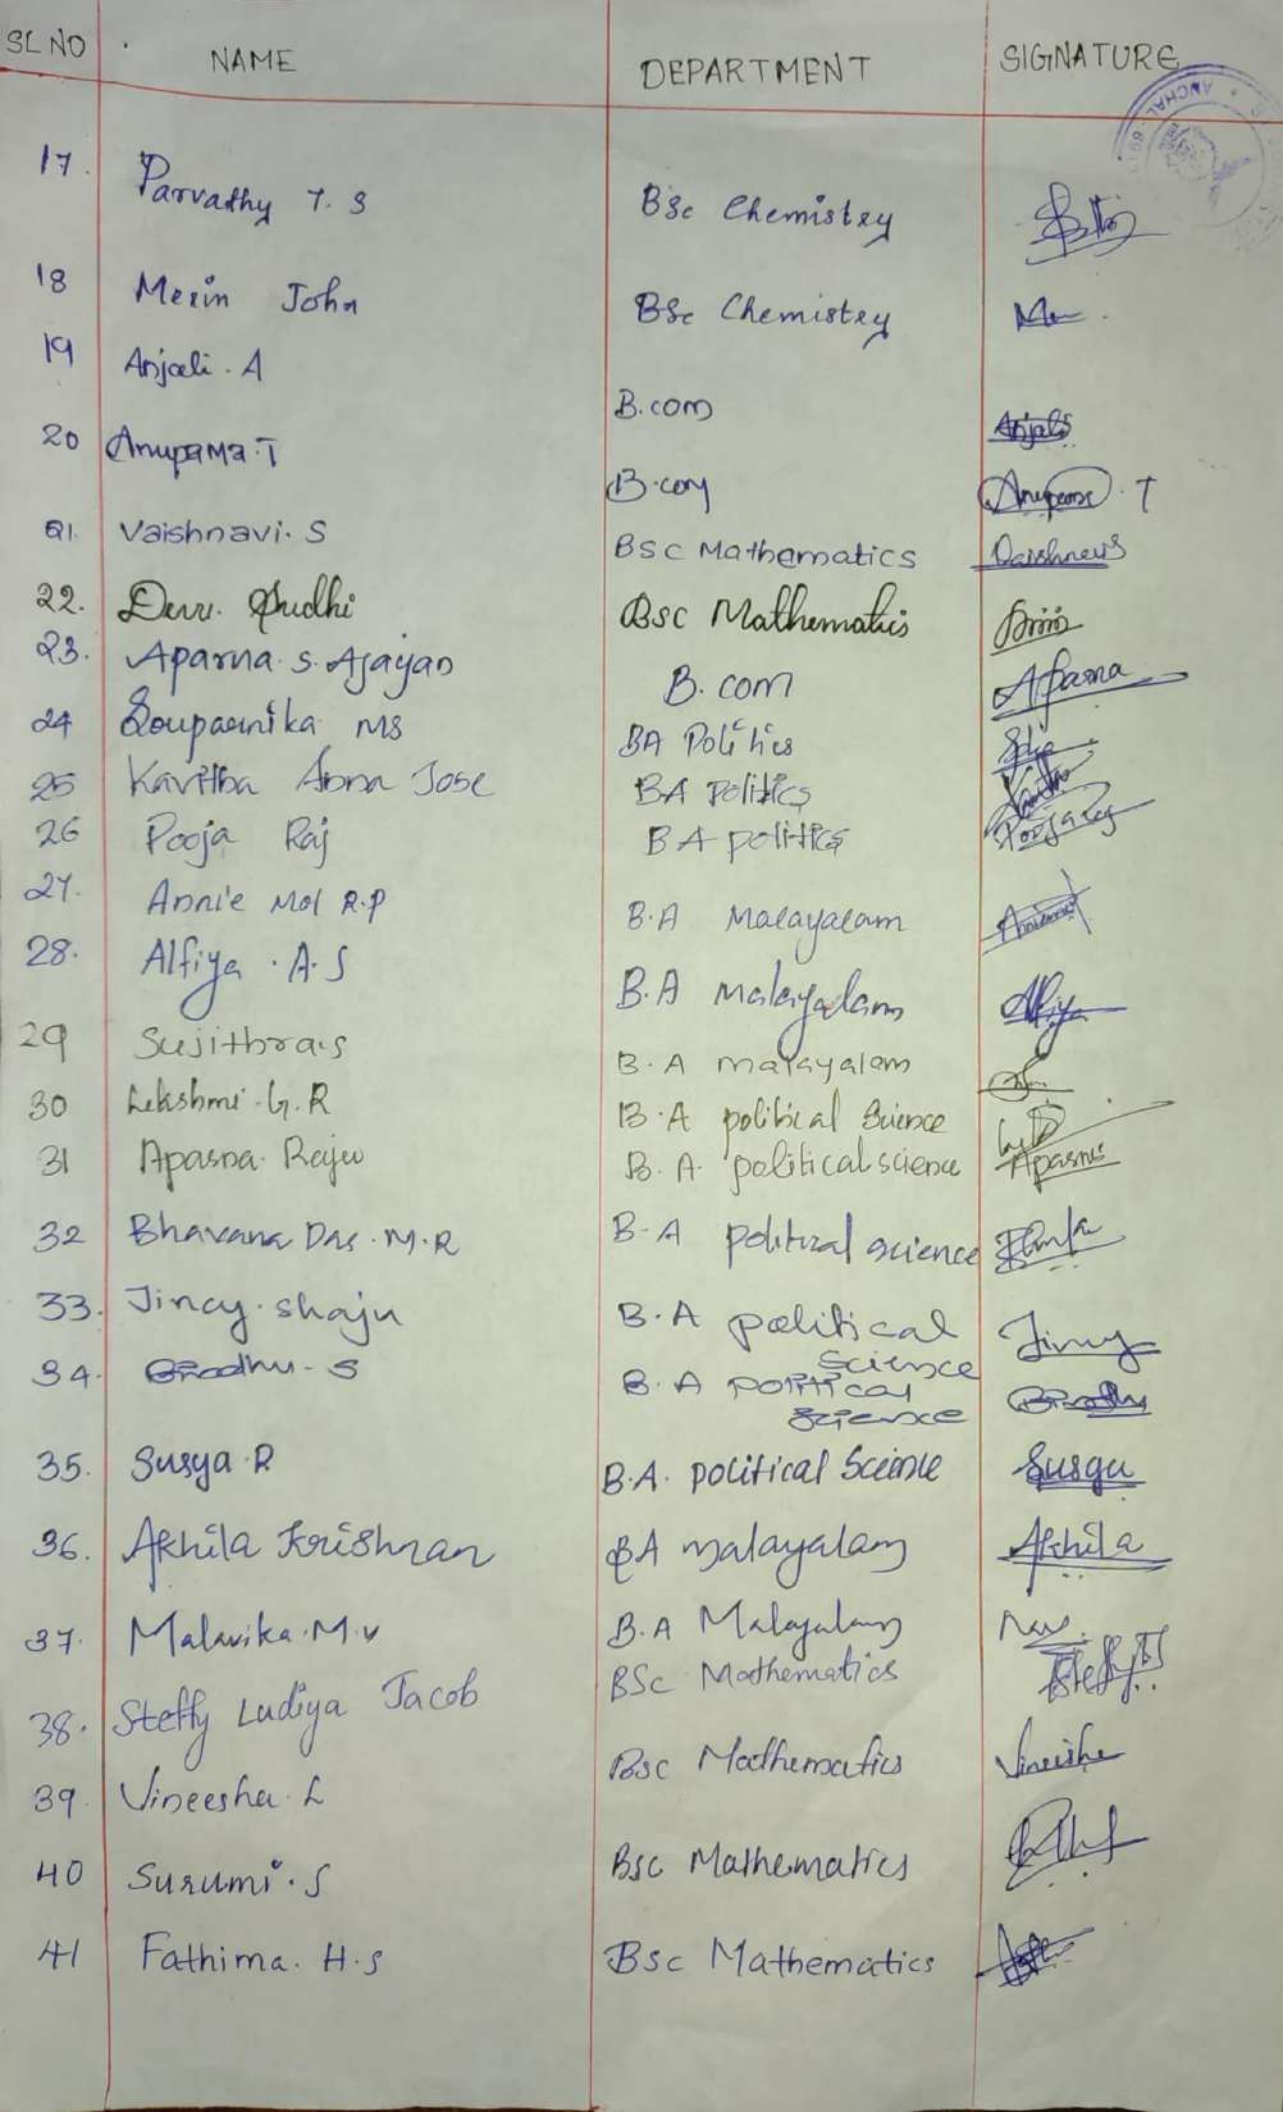 SL NO NAME DEPARTMENT SIGNATURE
ANCHAL
17. Parvathy T. S BSc Chemistry
18 Merin John BSc Chemistry
19 Anjali . A B.com Anjali
20 Anupama . T B.com Anupama . T
21. Vaishnavi. S BSC Mathematics
22. Devu. Sudhi BSC Mathematics
23. Aparna. S. Ajayan B. com Aparna
24 Souparnika MS BA Politics
25 Kavitha Anna Jose BA Politics
26 Pooja Raj BA politics Pooja Raj
27. Annie Mol R.P B.A Malayalam
28. Alfiya . A. S B.A Malayalam Alfiya
29 Sujithra.S B. A malayalam
30 Lekshmi . G. R B. A political Science
31 Aparna Raju B. A. political science Aparna
32 Bhavana Das . M. R B. A political science
33. Jincy. shaju B. A political science Jincy
34. S B. A political science
35. Surya R B.A. political Science Surya
36. Akhila Krishnan BA malayalam Akhila
37. Malavika. M. V B.A Malayalam
38. Steffy Ludiya Jacob BSc Mathematics Steffy
39. Vineesha. L Bsc Mathematics Vineesha
40 Surumi. S Bsc Mathematics
41 Fathima. H. S Bsc Mathematics